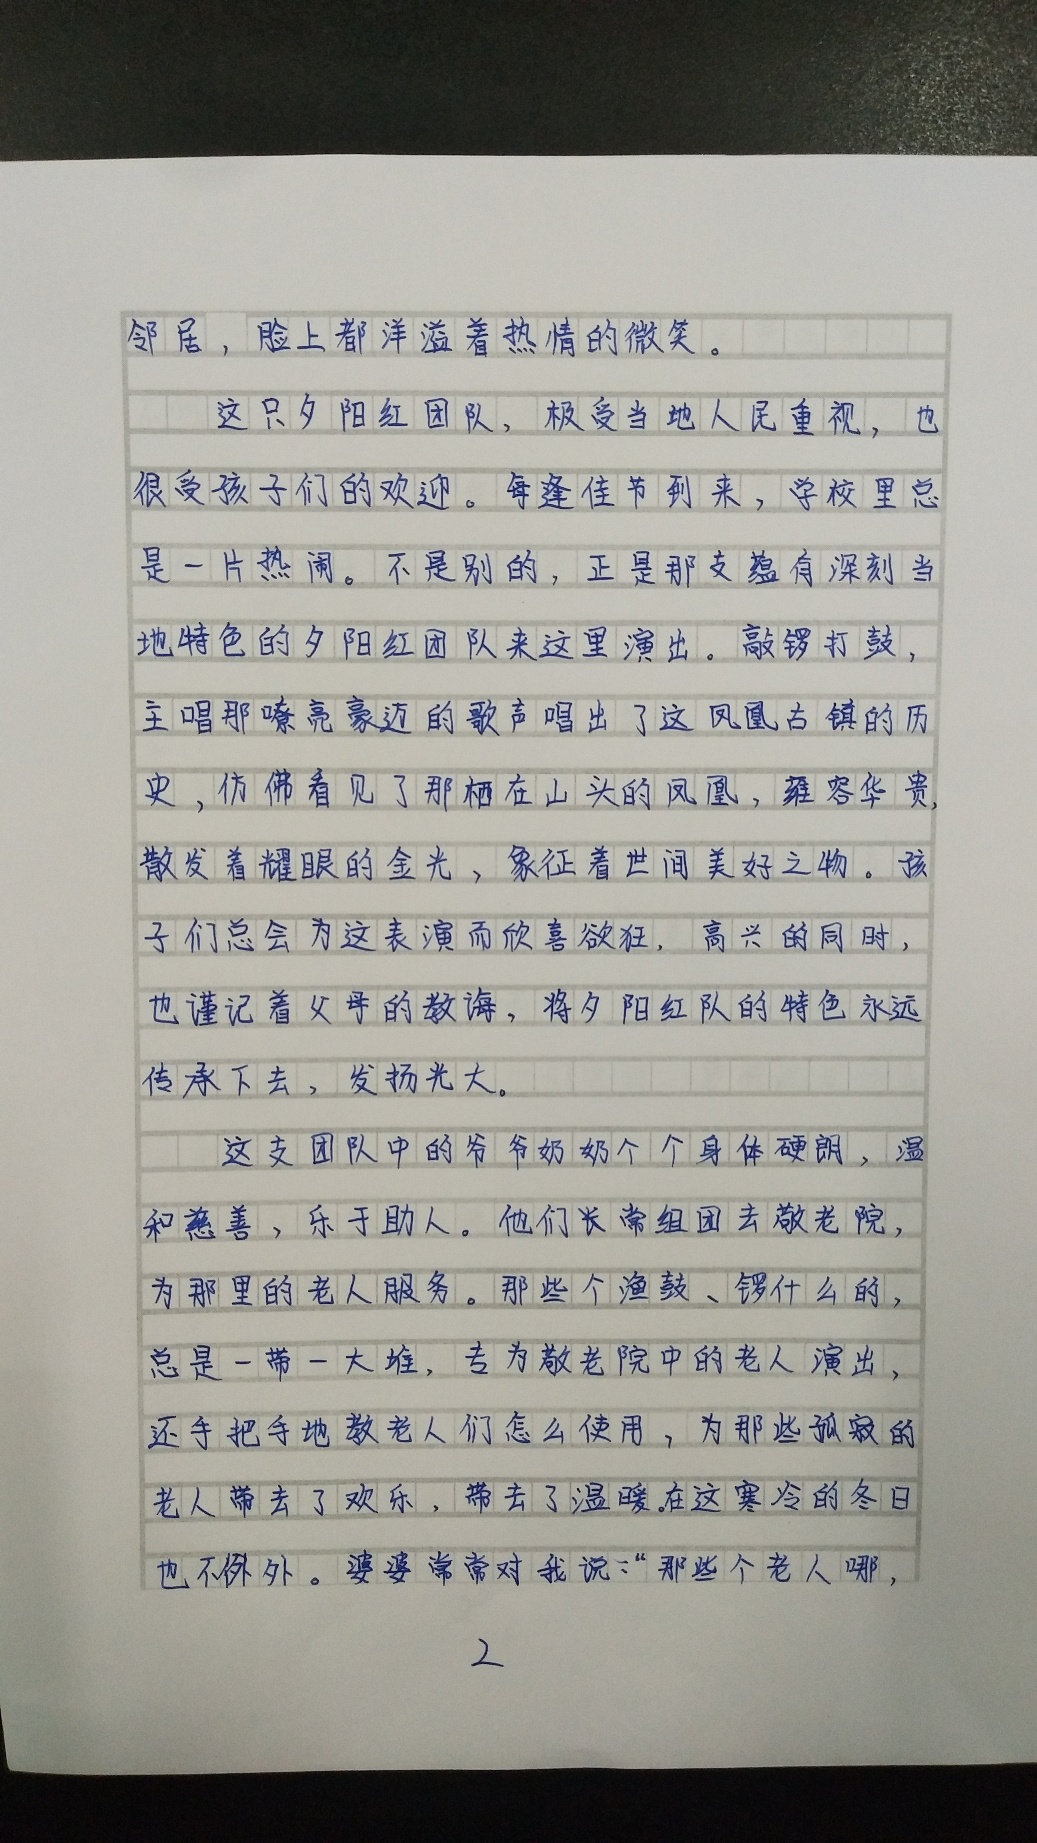 邻居，脸上都洋溢着热情的微笑。
这只夕阳红团队，极受当地人民重视，也
很受孩子们的欢迎。每逢佳节到来，学校里总
是一片热闹。不是别的，正是那支蕴有深刻当
地特色的夕阳红团队来这里演出。敲锣打鼓，
主唱那嘹亮豪迈的歌声唱出了这凤凰古镇的历
史，仿佛看见了那栖在山头的凤凰，雍容华贵，
散发着耀眼的金光，象征着世间美好之物。孩
子们总会为这表演而欣喜欲狂，高兴的同时，
也谨记着父母的教诲，将夕阳红队的特色永远
传承下去，发扬光大。
这支团队中的爷爷奶奶个个身体硬朗，温
和慈善，乐于助人。他们长常组团去敬老院，
为那里的老人服务。那些个渔鼓、锣什么的，
总是一带一大堆，专为敬老院中的老人演出，
还手把手地教老人们怎么使用，为那些孤寂的
老人带去了欢乐，带去了温暖。在这寒冷的冬日
也不例外。婆婆常常对我说：“那些个老人哪，
2